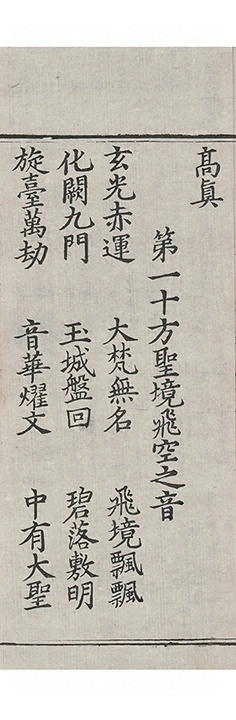 高眞
第一十方聖境飛空之音
玄光赤運　大梵無名　飛境飄飄
化闕九門　玉城盤回　碧落敷明
旋臺萬劫　音華燿文　中有大聖